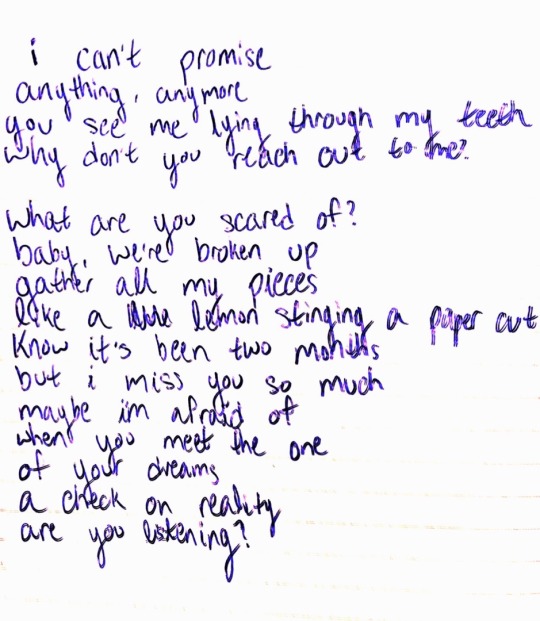 i can't promise
anything, anymore
you see me lying through my teeth
why don't you reach out to me?
what are you scared of?
baby, we're broken up
gather all my pieces
like a lemon stinging a paper cut
know it's been two months
but i miss you so much
maybe im afraid of
when you meet the one
of your dreams
a check on reality
are you listening?